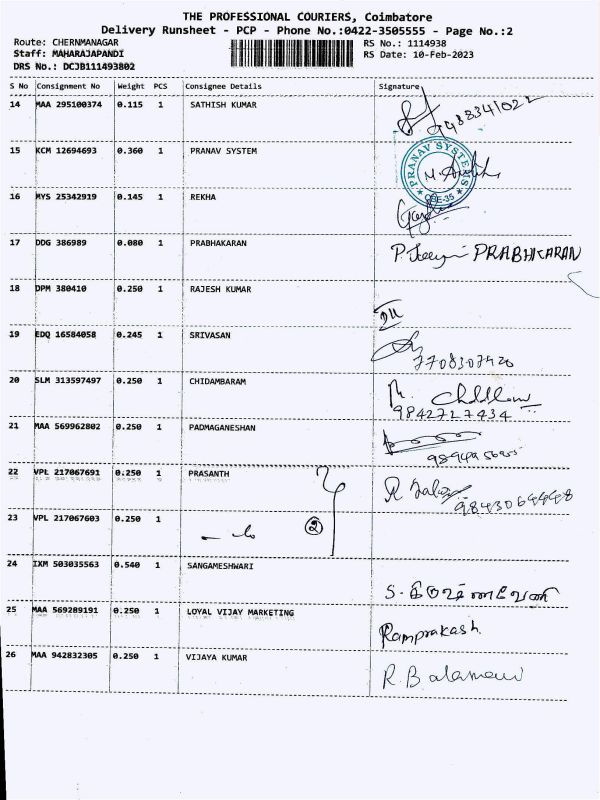 THE PROFESSIONAL COURIERS, Coimbatore
Delivery Runsheet - PCP - Phone No.:0422-3505555 - Page No.:2
Route: CHERNMANAGAR
RS No.: 1114938
Staff: MAHARAJAPANDI
RS Date: 10-Feb-2023
DRS No.: DCJB111493802
S No Consignment No Weight PCS Consignee Details Signature
14 MAA 295100374 0.115 1 SATHISH KUMAR
15 KCM 12694693 0.360 1 PRANAV SYSTEM
PRANAV SYSTEMS
CBE-35
16 MYS 25342919 0.145 1 REKHA
17 DDG 386989 0.080 1 PRABHAKARAN
PRABHAKARAN
18 DPM 380410 0.250 1 RAJESH KUMAR
19 EDQ 16584058 0.245 1 SRIVASAN
7708307420
20 SLM 313597497 0.250 1 CHIDAMBARAM
9842727434
21 MAA 569962802 0.250 1 PADMAGANESHAN
22 VPL 217067691 0.250 1 PRASANTH
23 VPL 217067603 0.250 1
2
24 IXM 503035563 0.540 1 SANGAMESHWARI
25 MAA 569289191 0.250 1 LOYAL VIJAY MARKETING
Ramprakash.
26 MAA 942832305 0.250 1 VIJAYA KUMAR